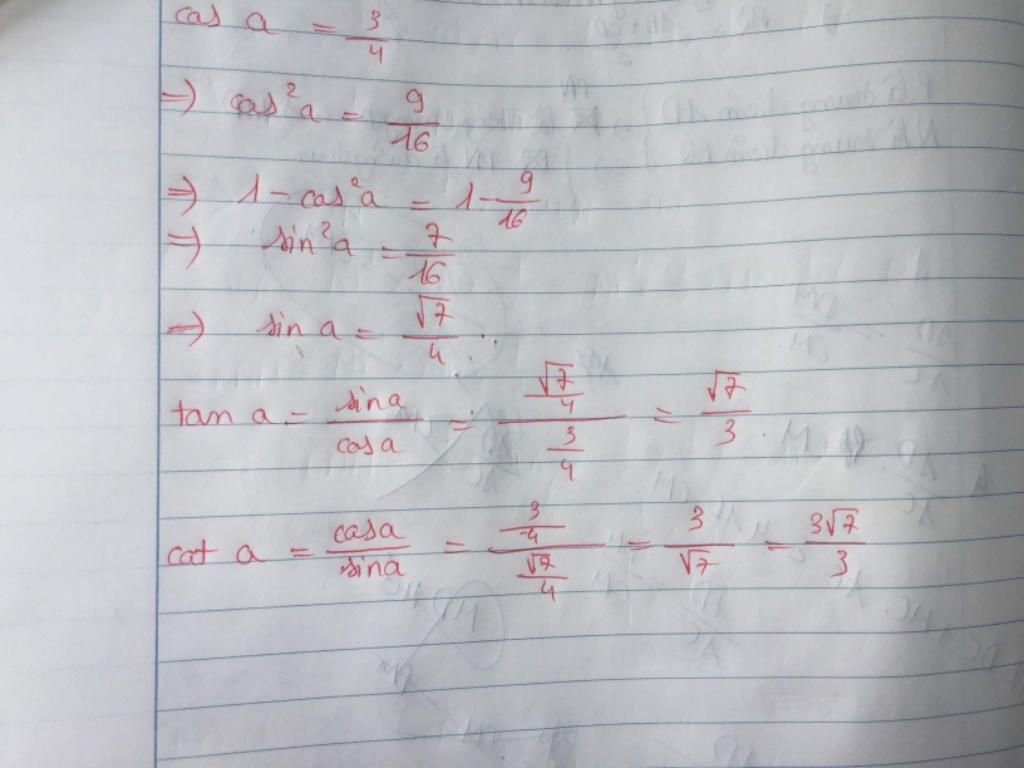 cos a = 3/4
=> cos²a = 9/16
=> 1 - cos²a = 1 - 9/16
=> sin²a = 7/16
=> sin a = √7/4.
tan a = sin a/cos a = (√7/4)/(3/4) = √7/3.
cot a = cos a/sin a = (3/4)/(√7/4) = 3/√7 = 3√7/3